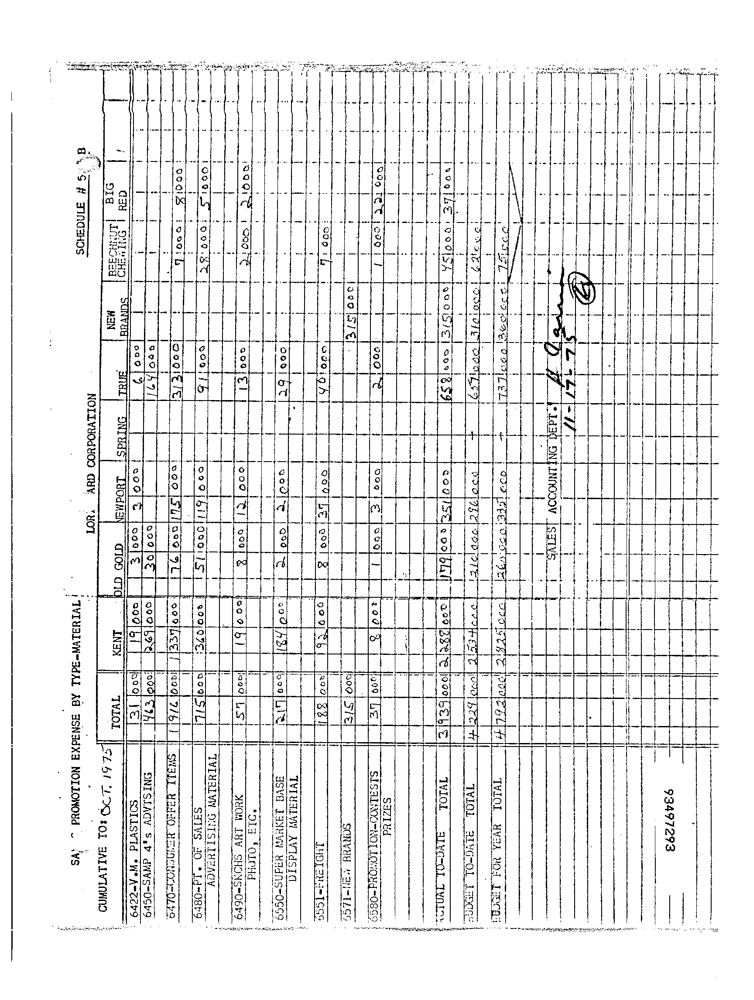 SCHEDULE # 5 B
LOR. ARD CORPORATION
PROMOTION EXPENSE BY TYPE-MATERIAL
CUMULATIVE TO: OCT. 1975
TOTAL KENT OLD GOLD NEWPORT SPRING TRUE NEW BRANDS BEECHNUT CHEWING BIG RED
6422-V.M. PLASTICS 31 000 19 000 3 000 3 000 6 000
6450-SAMP 4's ADVTSING 463 000 269 000 30 000 164 000
6470-CONSUMER OFFER ITEMS 1 916 000 1 337 000 76 000 175 000 313 000 7 000 8 000
6480-PT. OF SALES 715 000 360 000 51 000 119 000 91 000 28 000 5 000
ADVERTISING MATERIAL
6490-SKCHS ART WORK 57 000 19 000 8 000 12 000 13 000 2 000 2 000
PHOTO, ETC.
6550-SUPER MARKET BASE 217 000 184 000 2 000 2 000 29 000
DISPLAY MATERIAL
6551-FREIGHT 188 000 92 000 8 000 37 000 40 000 7 000
6571-NEW BRANDS 315 000 315 000
6580-PROMOTION-CONTESTS 37 000 8 000 1 000 3 000 2 000 1 000 22 000
PRIZES
ACTUAL TO-DATE TOTAL 3 939 000 2 288 000 179 000 351 000 658 000 315 000 45 000 37 000
BUDGET TO-DATE TOTAL 4 229 000 2 534 000 210 000 296 000 — 657 000 310 000 62 000
BUDGET FOR YEAR TOTAL 4 792 000 2 925 000 260 000 335 000 — 737 000 360 000 75 000
SALES ACCOUNTING DEPT.
11-19-75
93497293